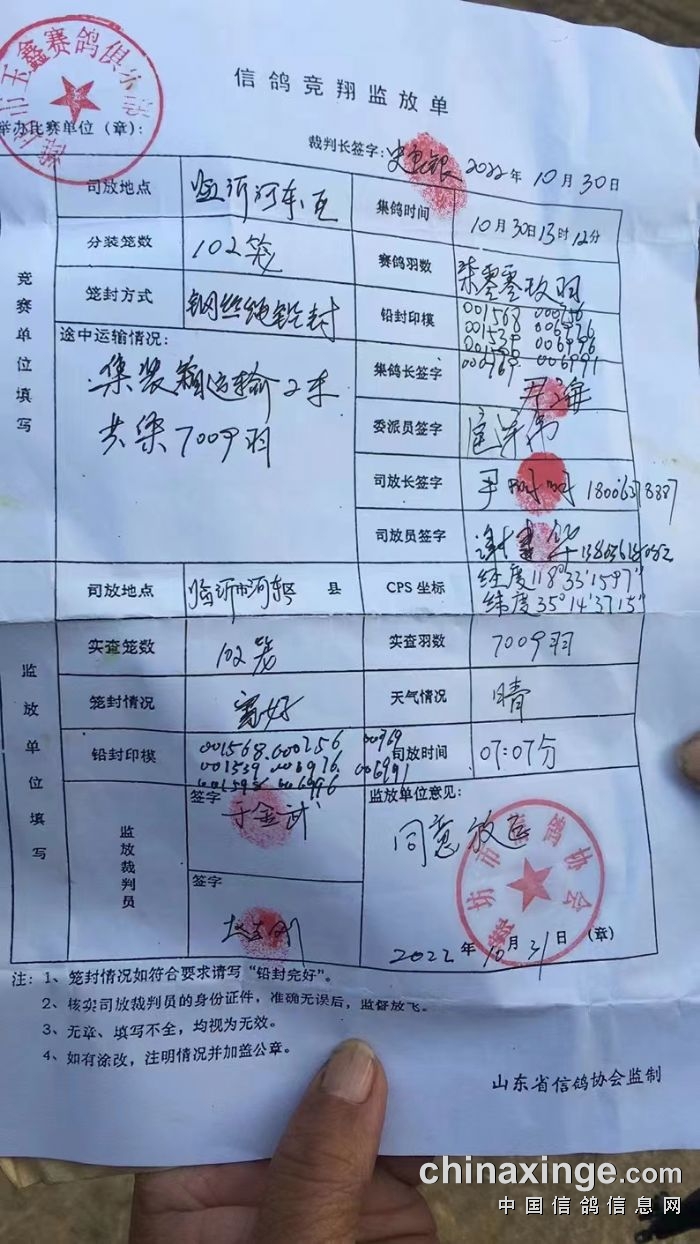 信鸽竞翔监放单
举办比赛单位（章）：
裁判长签字： 2022年10月30日
竞赛单位填写
司放地点 临沂河东区
集鸽时间 10月30日13时12分
分装笼数 102笼
赛鸽羽数 柒零零玖羽
笼封方式 钢丝绳铅封
铅封印模 001568 000256
001539 006976
006996
000969 006991
途中运输情况：
集装箱运输2车
共集7009羽
集鸽长签字
委派员签字
司放长签字
司放员签字
司放地点 临沂市河东区 县
CPS 坐标 经度118°33'1597"
纬度35°14'3715"
监放单位填写
实查笼数 102笼
实查羽数 7009羽
笼封情况 完好
天气情况 晴
铅封印模 001568.000256 00969
001539 006976 006991
006996
司放时间 07:07分
监放裁判员
签字 于金武
签字
监放单位意见：
同意放飞
2022年10月31日（章）
注：1、笼封情况如符合要求请写“铅封完好”。
2、核实司放裁判员的身份证件，准确无误后，监督放飞。
3、无章、填写不全，均视为无效。
4、如有涂改，注明情况并加盖公章。
山东省信鸽协会监制
chinaxinge.com
中国信鸽信息网